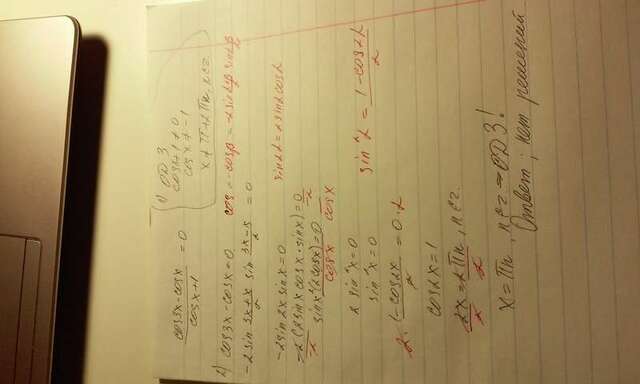 (cos3x-cosx)/(cosx+1) = 0
1) ОДЗ
cosx+1≠0
cosx≠-1
x≠π+2πn, n∈z
2) cos3x-cosx=0
-2sin (3x+x)/2 sin (3x-x)/2 = 0
-2sin2xsinx=0
sin2α=2sinαcosα
-2(2sinxcosx·sinx)=0
sinx²(2cosx)=0
cosx cosx
2sin²x=0
sin²x=0
sin²α = (1-cos2α)/2
2· (1-cos2x)/2 = 0·2
cos2x=1
2x/2=2πn/2, n∈z
x=πn, n∈z ⇒ОДЗ!
Ответ; нет решений